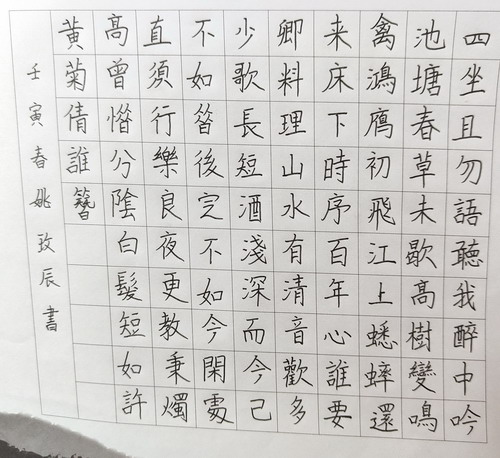 四坐且勿語聽我醉中吟
池塘春草未歇高樹變鳴
禽鴻鴈初飛江上蟋蟀還
来床下時序百年心誰要
卿料理山水有清音歡多
少歌長短酒淺深而今己
不如昝後定不如今閑處
直須行樂良夜更教秉燭
高曾憯分陰白髮短如許
黃菊倩誰簪
壬寅春姚玫辰書